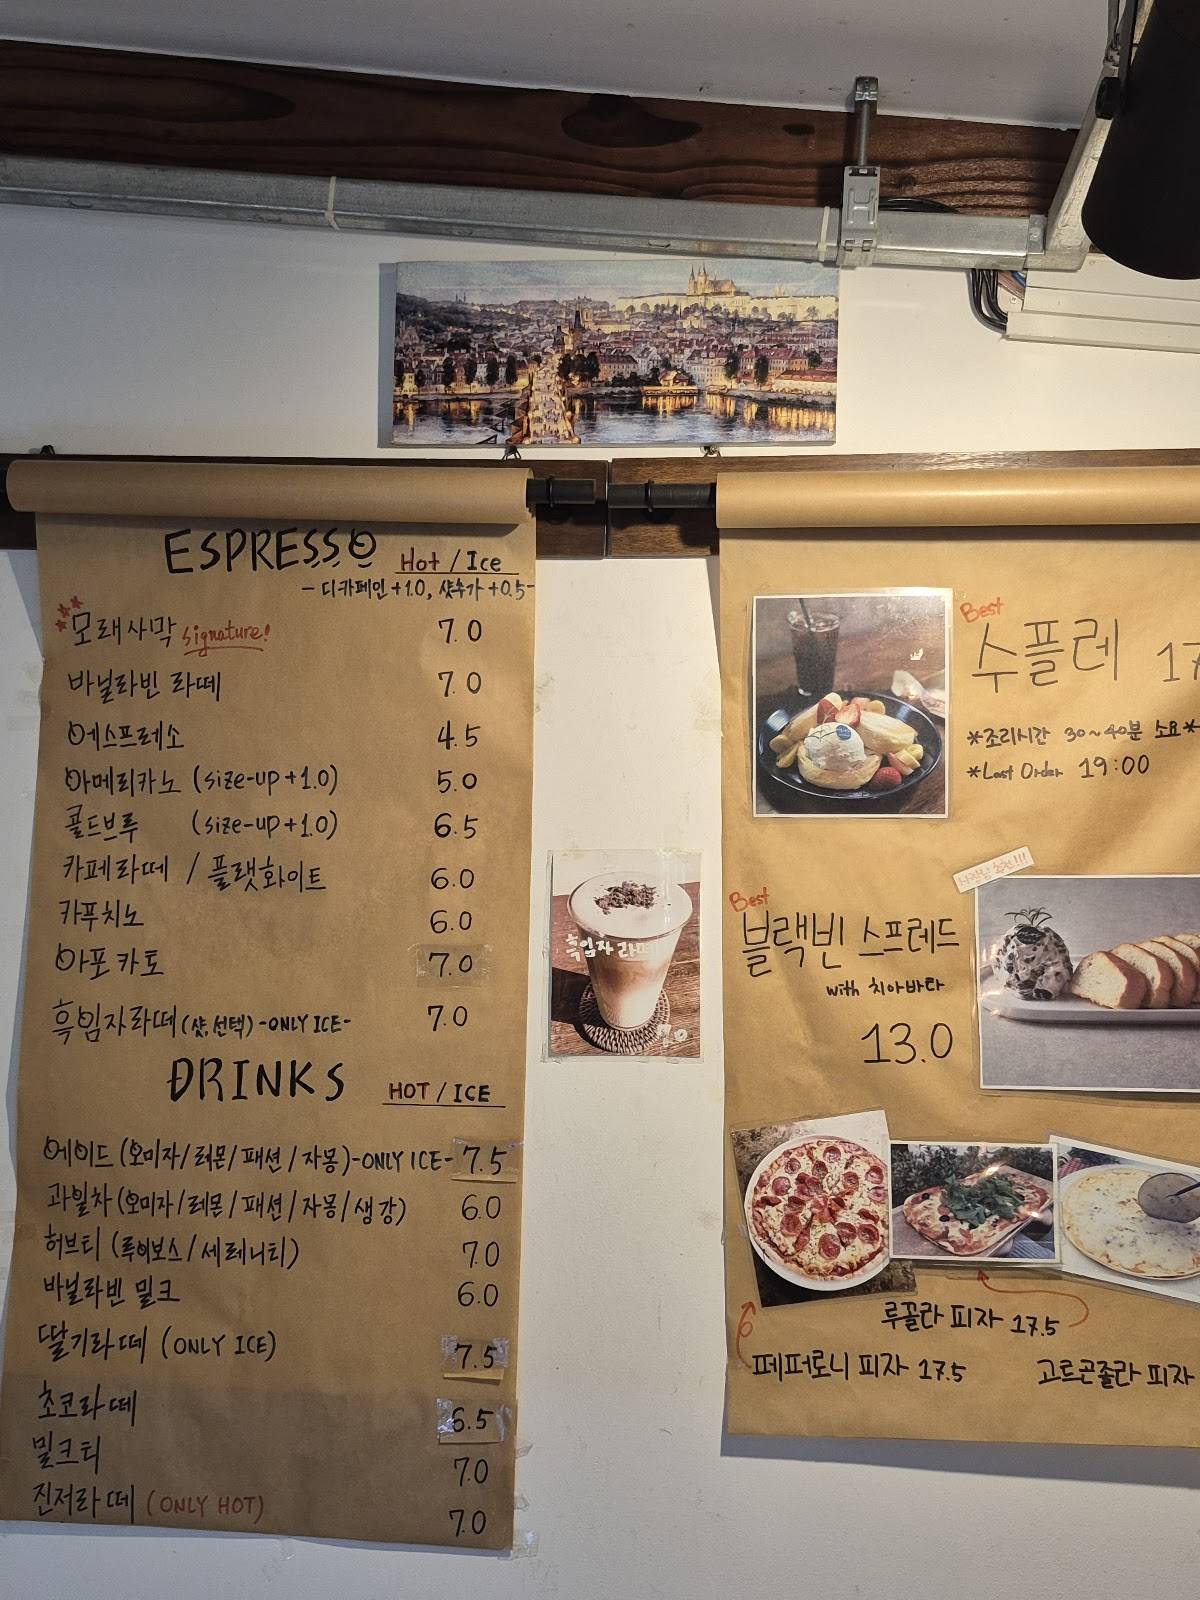 ESPRESSO Hot / Ice
- 디카페인 +1.0, 샷추가 +0.5-
모래사막 signature! 7.0
바닐라빈 라떼 7.0
에스프레소 4.5
아메리카노 (size-up +1.0) 5.0
콜드브루 (size-up +1.0) 6.5
카페라떼 / 플랫화이트 6.0
카푸치노 6.0
아포카토 7.0
흑임자라떼 (샷 선택) -ONLY ICE- 7.0
DRINKS HOT / ICE
에이드 (오미자/레몬/패션/자몽) -ONLY ICE- 7.5
과일차 (오미자/레몬/패션/자몽/생강) 6.0
허브티 (루이보스/세레니티) 7.0
바닐라빈 밀크 6.0
딸기라떼 (ONLY ICE) 7.5
초코라떼 6.5
밀크티 7.0
진저라떼 (ONLY HOT) 7.0
흑임자 라떼
7.0
Best
수플레 17
*조리시간 30~40분 소요*
*Last Order 19:00
Best
블랙빈 스프레드
with 치아바타
13.0
루꼴라 피자 17.5
페퍼로니 피자 17.5
고르곤졸라 피자